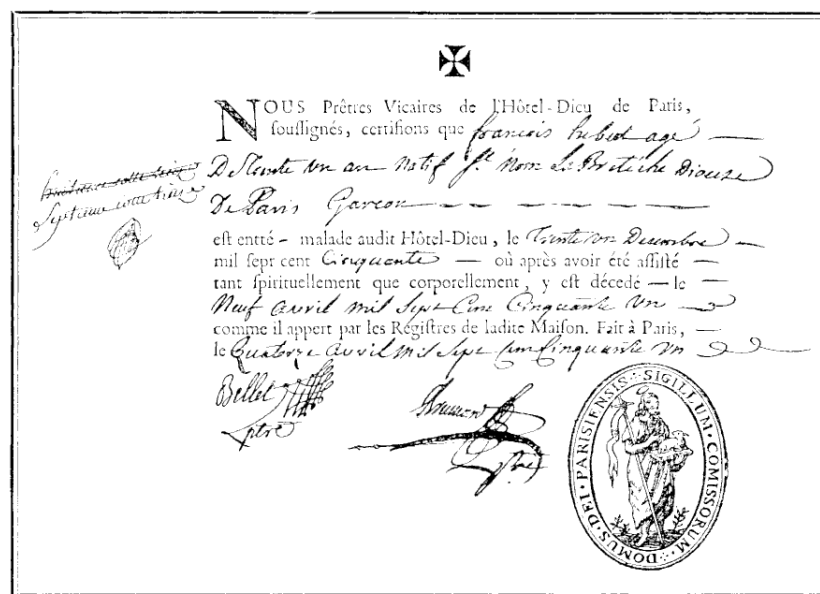 NOUS Prêtres Vicaires de l'Hôtel-Dieu de Paris,
soussignés, certifions que françois hebert agé —
De trente un an Natif St. Nom La Bretêche Dioceze
De Paris Garçon — — — — —
est entré - malade audit Hôtel-Dieu, le Trente un Decembre —
mil sept cent Cinquante — où après avoir été assisté —
tant spirituellement que corporellement, y est décédé — le —
Neuf avril mil sept Cent Cinquante Un —
comme il appert par les Régistres de ladite Maison. Fait à Paris, —
le Quatorze avril mil sept cent Cinquante un
Bellet
ptre
ptre
DOMUS·DEI·PARISIENSIS·SIGILLUM·COMISSORUM